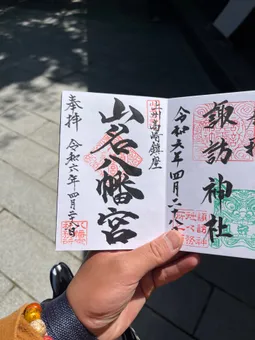 奉拝
諏訪神社
令和六年四月二十八日
上州高崎鎮座
山名八幡宮
奉拝 令和六年四月二十八日